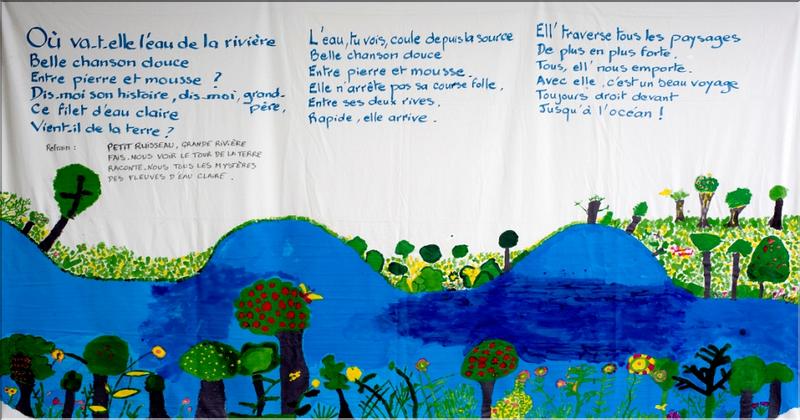 Où va-t-elle l'eau de la rivière
Belle chanson douce
Entre pierre et mousse ?
Dis-moi son histoire, dis-moi, grand-
père,
Ce filet d'eau claire
Vient-il de la terre ?
Refrain : PETIT RUISSEAU, GRANDE RIVIÈRE
FAIS-NOUS VOIR LE TOUR DE LA TERRE
RACONTE-NOUS TOUS LES MYSTÈRES
DES FLEUVES D'EAU CLAIRE .
L'eau, tu vois, coule depuis la source
Belle chanson douce
Entre pierre et mousse.
Elle n'arrête pas sa course folle,
Entre ses deux rives.
Rapide, elle arrive.
Ell' traverse tous les paysages
De plus en plus forte.
Tous, ell' nous emporte.
Avec elle, c'est un beau voyage
Toujours droit devant
Jusqu'à l'océan !